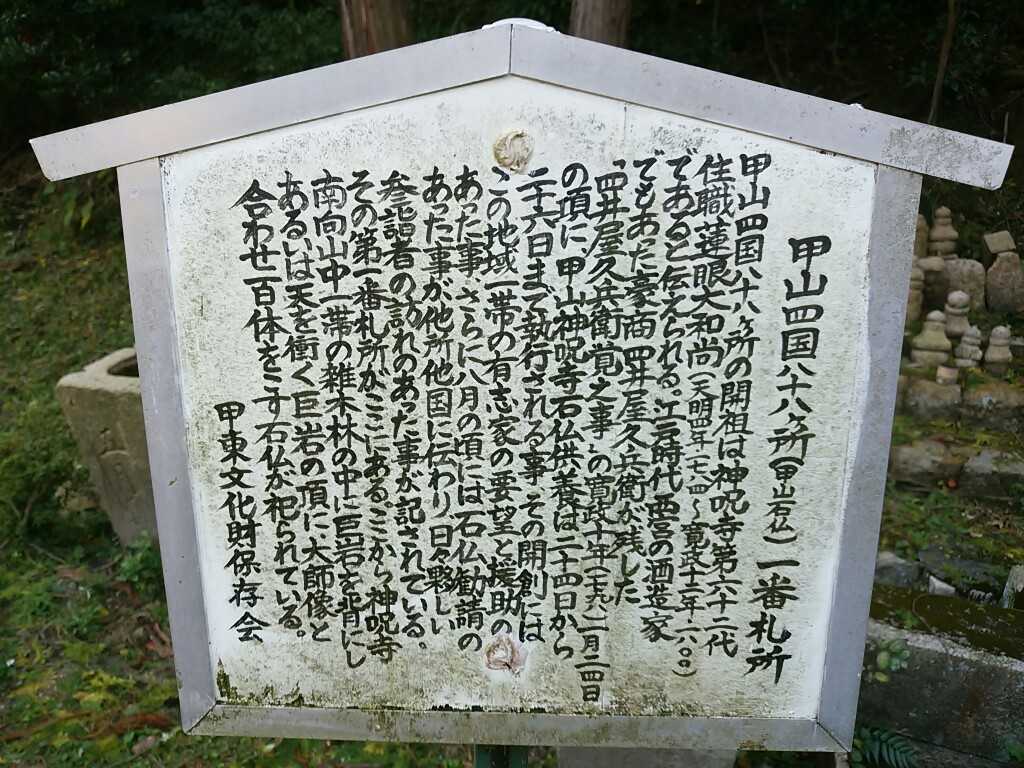 甲山四国八十八ヶ所(甲山石仏)一番札所
甲山四国八十八ヶ所の開祖は神呪寺第六十二代
住職蓮眼大和尚(天明四年一七八四〜寛政十二年一八〇〇)
であると伝えられる。江戸時代、西宮の酒造家
でもあった豪商四井屋久兵衛が残した
「四井屋久兵衛覚之事」の寛政十年(一七九八)二月二四日
の項に、甲山神呪寺石仏供養は二十四日から
二十六日まで執行される事、その開創には
この地域一帯の有志家の要望と援助の
あった事、さらに八月の頃には石仏勧請の
あった事が他所他国に伝わり日々夥しい
参詣者の訪れのあった事が記されている。
その第一番札所がここにある。ここから神呪寺
南向山中一帯の雑木林の中に巨岩を背にし
あるいは天を衝く巨岩の頂に大師像と
合わせ一百体をこす石仏が祀られている。
甲東文化財保存会